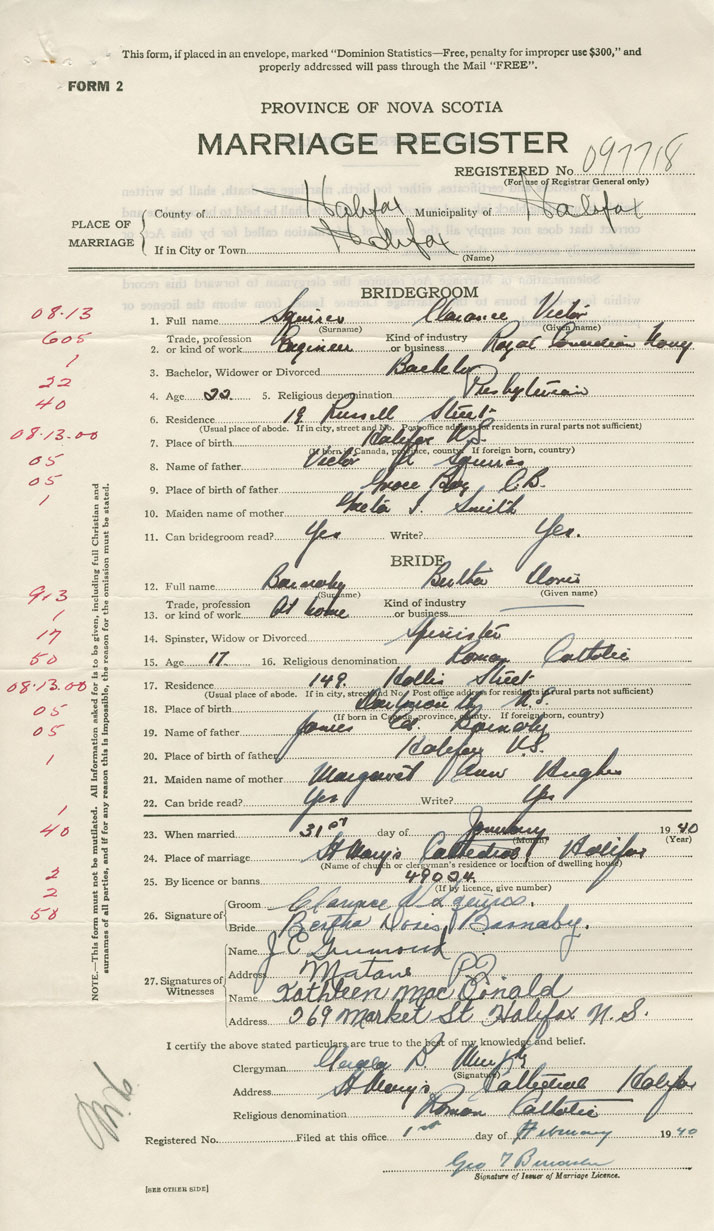 This form, if placed in an envelope, marked "Dominion Statistics—Free, penalty for improper use $300," and
properly addressed will pass through the Mail "FREE".
FORM 2
PROVINCE OF NOVA SCOTIA
MARRIAGE REGISTER
REGISTERED No. 097718
(For use of Registrar General only)
PLACE OF MARRIAGE
County of Halifax Municipality of Halifax
If in City or Town Halifax
(Name)
BRIDEGROOM
08.13 1. Full name Squires Clarence Victor
(Surname) (Given name)
605 2. Trade, profession or kind of work Engineer Kind of industry or business Royal Canadian Navy
1 3. Bachelor, Widower or Divorced Bachelor
22 4. Age 22 5. Religious denomination Presbyterian
40 6. Residence 19 Russell Street
(Usual place of abode. If in city, street and No. Post office address for residents in rural parts not sufficient)
08.13.00 7. Place of birth Halifax N.S.
(If born in Canada, province, county. If foreign born, country)
05 8. Name of father Victor Squires
05 9. Place of birth of father Grace Bay C.B.
1 10. Maiden name of mother Greta I. Smith
11. Can bridegroom read? Yes Write? Yes.
BRIDE
12. Full name Barnaby Bertha Doris
(Surname) (Given name)
913 13. Trade, profession or kind of work At home Kind of industry or business
1 14. Spinster, Widow or Divorced Spinister
17 15. Age 17 16. Religious denomination Roman Catholic
50 17. Residence 149 Hollis Street
(Usual place of abode. If in city, street and No. Post office address for residents in rural parts not sufficient)
08.13.00 18. Place of birth N.S.
(If born in Canada, province, county. If foreign born, country)
05 19. Name of father James Ed. Barnaby
05 20. Place of birth of father Halifax N.S.
21. Maiden name of mother Margaret Ann Hughes
1 22. Can bride read? Yes Write? Yes
1 23. When married 31st day of January 1940
(Month) (Year)
40 24. Place of marriage St Mary's Cathedral Halifax
(Name of church or clergyman's residence or location of dwelling house)
2 25. By licence or banns 49024
(If by licence, give number)
2
50 26. Signature of
Groom Clarence V Squires.
Bride Bertha Doris Barnaby.
27. Signatures of Witnesses
Name J C
Address Matane P.Q
Name Kathleen MacDonald
Address 269 Market St Halifax N.S.
NOTE.—This form must not be mutilated. All information asked for is to be given, including full Christian and
surnames of all parties, and if for any reason this is impossible, the reason for the omission must be stated.
I certify the above stated particulars are true to the best of my knowledge and belief.
Clergyman B. Murphy
(Signature)
Address St Mary's Cathedral Halifax
Religious denomination Roman Catholic
Registered No. Filed at this office 1st day of February 1940
Geo T
Signature of Issuer of Marriage Licence.
[SEE OTHER SIDE]